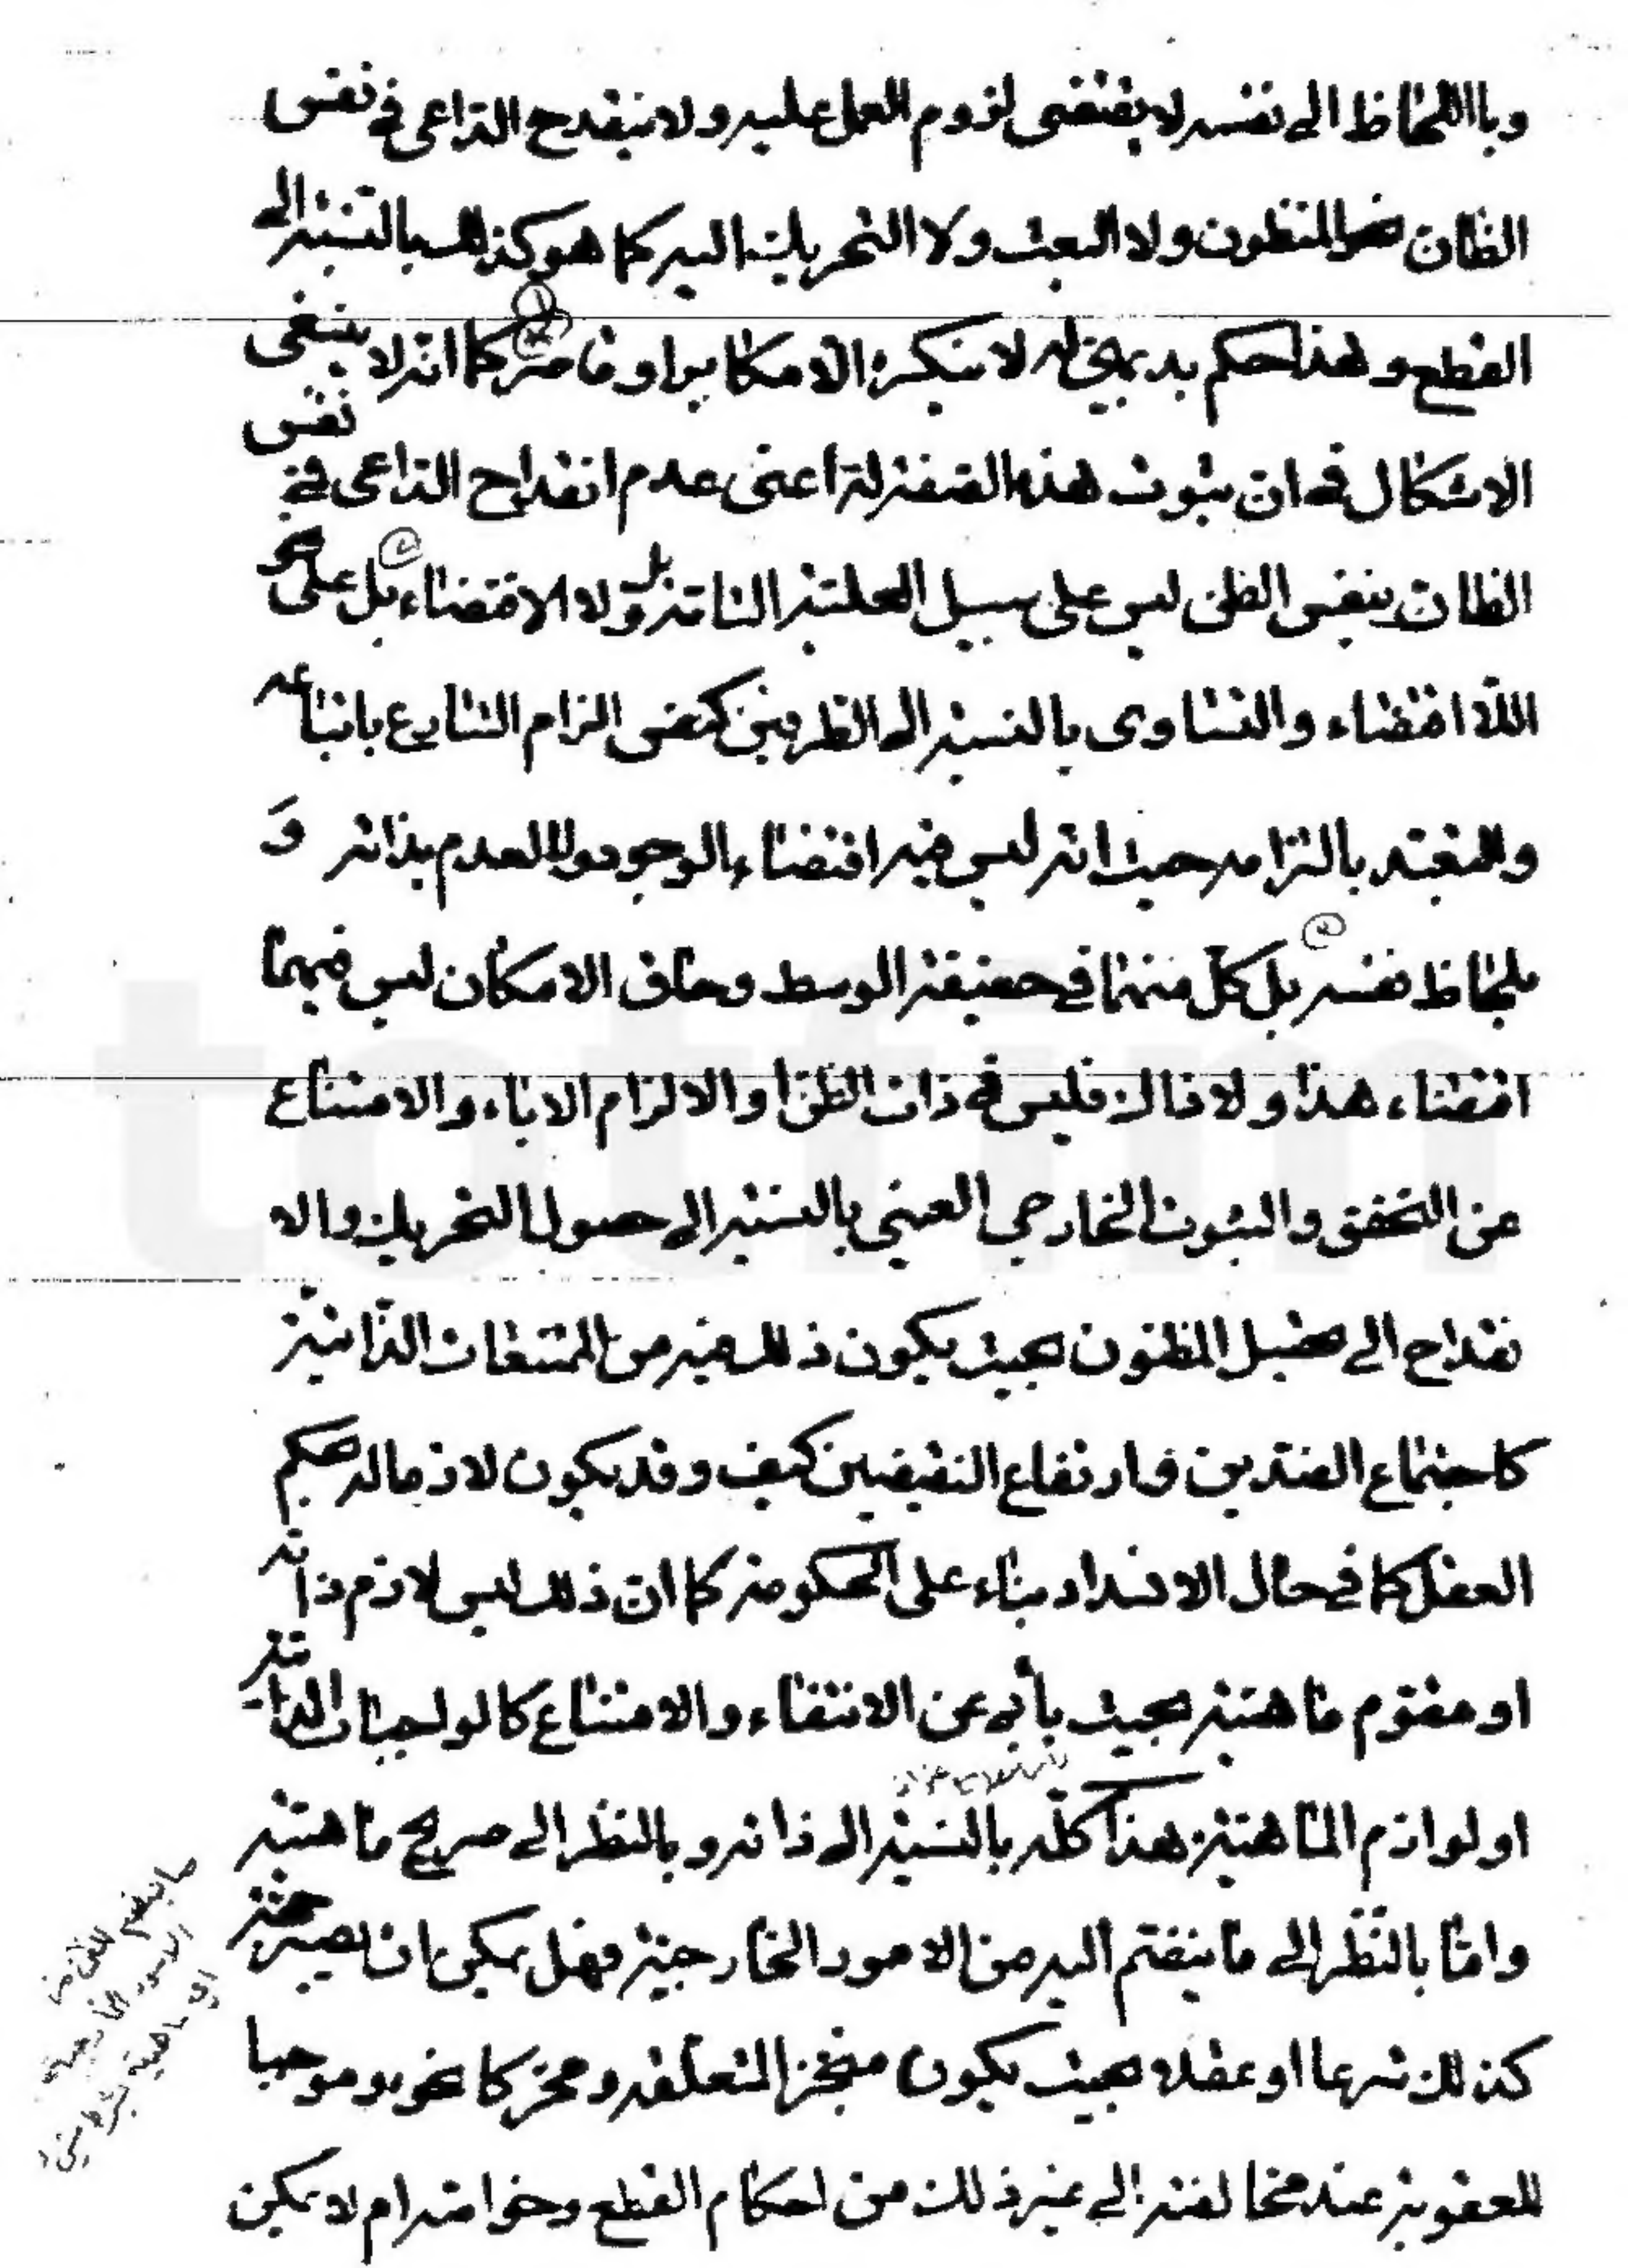 وباللحاظ الى نفسه لا يقتضى لزوم العمل عليه ولا ينقدح الداعى في نفس
الظان نحو المظنون ولا البعث ولا التحريك اليه كما هو كذلك بالنسبة الى
القطع وهذا حكم بديهى لا ينكره الا مكابر او قاصر كما انه لا ينبغى
الاشكال فى ان ثبوت هذه الصفة له اعنى عدم انقداح الداعى في نفس
الظان بنفس الظن ليس على سبيل العلية التامة بل ولا الاقتضاء بل على نحو
اللا اقتضاء والتساوى بالنسبة الى الطرفين كنفس الزام الشارع باتباعه
والتعبد بالتزامه حيث انه ليس فيه اقتضاء الوجود ولا العدم بذاته و
بلحاظ نفسه بل كل منهما في حقيقة الوسط وحاق الامكان ليس فيهما
اقتضاء هذا ولا ذاك فليس فى ذات الظن او الالزام الاباء والامتناع
عن التحقق والثبوت الخارجي العيني بالنسبة الى حصول التحريك والا
نقداح الى تحصيل المظنون بحيث يكون ذلك فيه من الممتنعات الذاتية
كاجتماع الضدين وارتفاع النقيضين كيف وقد يكون لازما له بحكم
العقل كما في حال الانسداد بناء على الحكومة كما ان ذلك ليس لازم ذاته
او مقوم ماهيته بحيث يأبى عن الانتفاء والامتناع كالواجبات الذاتية
او لوازم الماهية هذا كله بالنسبة الى ذاته وبالنظر الى صريح ماهيته
واما بالنظر الى ما ينضم اليه من الامور الخارجية فهل يمكن ان يصير حجة
كذلك شرعا او عقلا بحيث يكون منجزا لمتعلقه ومحركا نحوه وموجبا
للعقوبة عند مخالفته الى غير ذلك من احكام القطع وخواصه ام لا يمكن